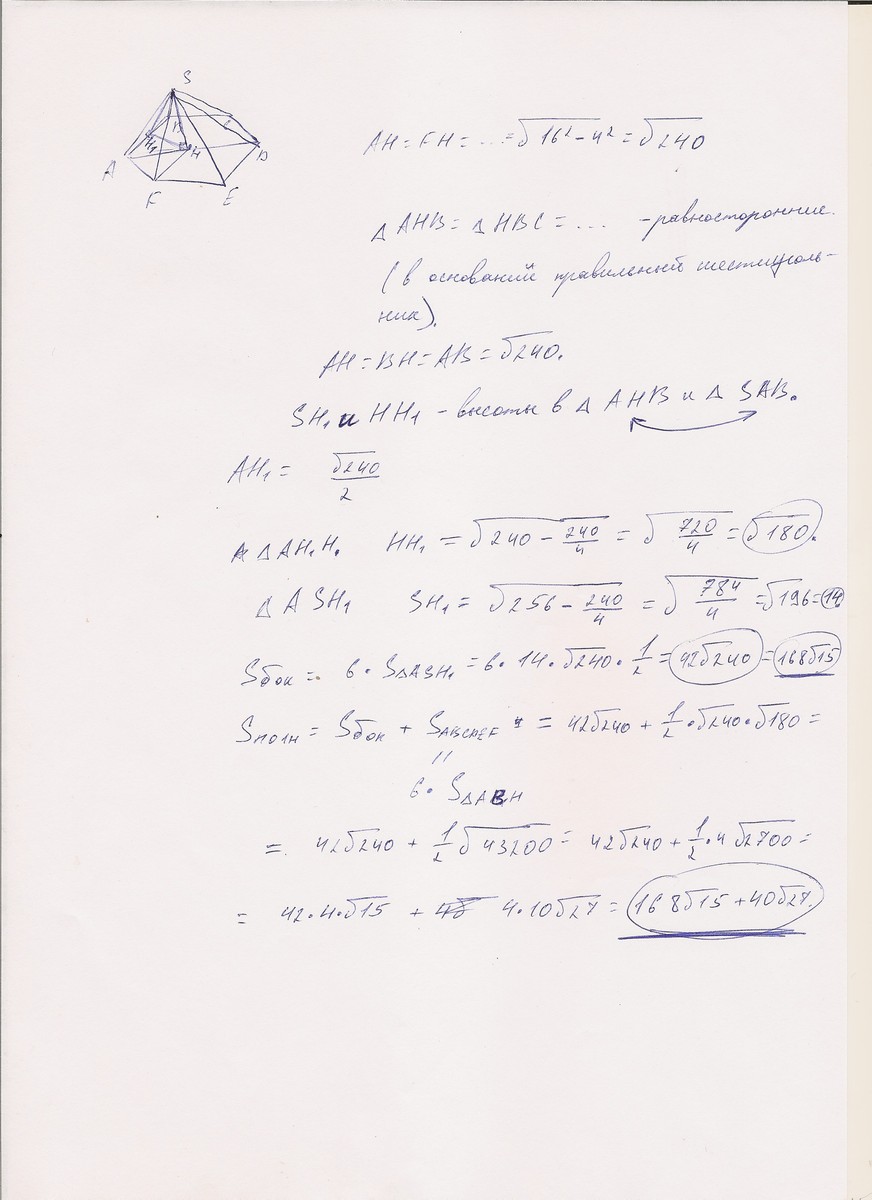 S
B
C
H₁
H
D
A
F
E
AH = FH = ... = √16² - 4² = √240
Δ AHB = Δ HBC = ... - равносторонние.
(в оснований правильный шестиуголь-
ник).
AH = BH = AB = √240.
SH₁ и HH₁ - высоты в Δ AHB и Δ SAB.
AH₁ = √240/2
Δ AH₁H. HH₁ = √240 - 240/4 = √720/4 = √180.
Δ ASH₁ SH₁ = √256 - 240/4 = √784/4 = √196 = 14
Sбок = 6 · SΔASH₁ = 6 · 14 · √240 · 1/2 = 42√240 = 168√15
Sполн = Sбок + SABCDEF = 42√240 + 1/2 · √240 · √180 =
"
6 · SΔABH
= 42√240 + 1/2 √43200 = 42√240 + 1/2 · 4√2700 =
= 42 · 4 · √15 + 4 · 10√27 = 168√15 + 40√27.